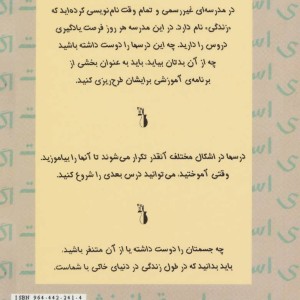 در مدرسه‌ای غیررسمی و تمام وقت نام‌نویسی کرده‌اید که
«زندگی» نام دارد. در این مدرسه هر روز فرصت یادگیری
دروس را دارید. چه این درسها را دوست داشته باشید
چه از آن بدتان بیاید. باید به عنوان بخشی از
برنامه‌ی آموزشی برایشان طرح‌ریزی کنید.
درسها در اشکال مختلف آنقدر تکرار می‌شوند تا آنها را بیاموزید.
وقتی آموختید. می‌توانید درس بعدی را شروع کنید.
چه جسمتان را دوست داشته یا از آن متنفر باشید.
باید بدانید که در طول زندگی در دنیای خاکی با شماست.
ISBN 964-442-241-4